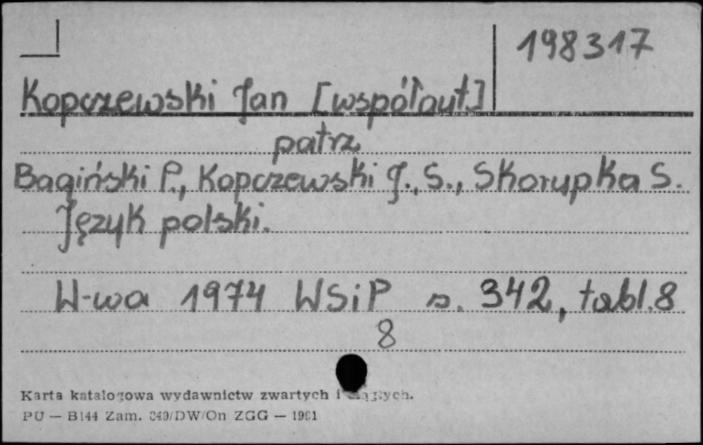 198317
Kopczewski Jan [współaut.]
patrz
Bagiński P., Kopczewski J., S., Skorupka S.
Język polski.
W-wa 1974 WSiP s. 342, tabl. 8
8
Karta katalogowa wydawnictw zwartych i ciągłych.
PU — B144 Zam. 349/DW/On ZGG — 1981